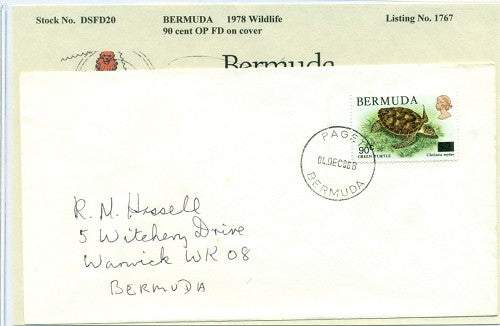 Stock No. DSFD20 BERMUDA 1978 Wildlife Listing No. 1767
90 cent OP FD on cover
Bermuda
BERMUDA
90c
GREEN TURTLE Chelonia mydas
PAGET
04.DEC986B
BERMUDA
R. M. Hassell
5 Witchery Drive
Warwick WK 08
BERMUDA